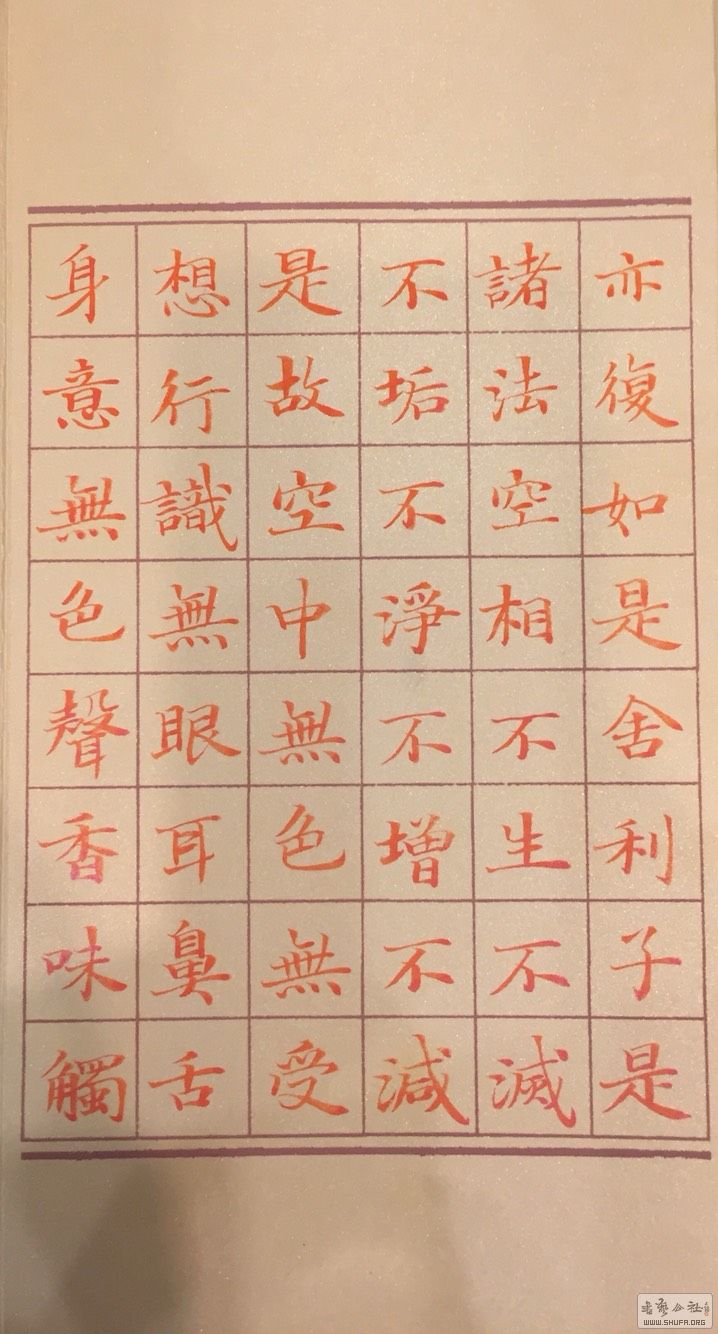 亦復如是舍利子是
諸法空相不生不滅
不垢不淨不增不減
是故空中無色無受
想行識無眼耳鼻舌
身意無色聲香味觸
書藝公社
WWW.SHUFA.ORG